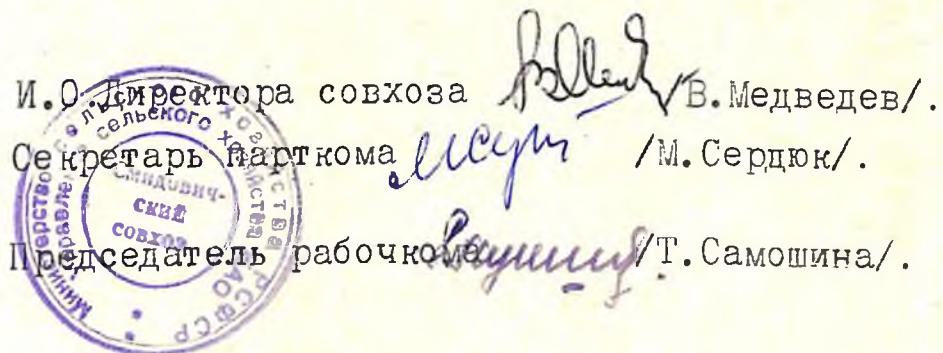 И.О.Директора совхоза /В.Медведев/.
Секретарь парткома /М.Сердюк/.
Председатель рабочкома /Т.Самошина/.
Министерство сельского хозяйства РСФСР
Управление сельского хозяйства ЕАО
Смидович-
ский
совхоз